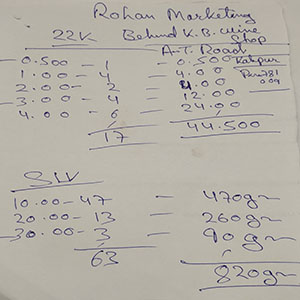 Rohan Marketing
22K Behind K.B. wine Shop
A.T. Road
0.500 - 1 - 0.500
1.00 - 4 - 4.00
2.00 - 2 - 4.00
3.00 - 4 - 12.00
4.00 - 6 - 24.00
17 44.500
10.00 - 47 - 470gm
20.00 - 13 - 260gm
30.00 - 3 - 90gm
63
820gm